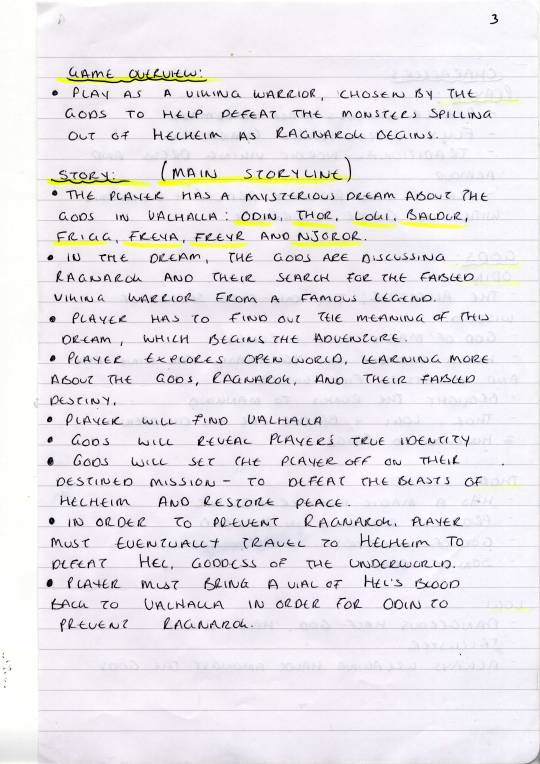 3
GAME OVERVIEW:
• PLAY AS A VIKING WARRIOR, CHOSEN BY THE
GODS TO HELP DEFEAT THE MONSTERS SPILLING
OUT OF HELHEIM AS RAGNAROK BEGINS.
STORY: (MAIN STORYLINE)
• THE PLAYER HAS A MYSTERIOUS DREAM ABOUT THE
GODS IN VALHALLA: ODIN, THOR, LOKI, BALDUR,
FRIGG, FREYA, FREYR AND NJOROR.
• IN THE DREAM, THE GODS ARE DISCUSSING
RAGNAROK AND THEIR SEARCH FOR THE FABLED
VIKING WARRIOR FROM A FAMOUS LEGEND.
• PLAYER HAS TO FIND OUT THE MEANING OF THIS
DREAM, WHICH BEGINS THE ADVENTURE.
• PLAYER EXPLORES OPEN WORLD, LEARNING MORE
ABOUT THE GODS, RAGNAROK, AND THEIR FABLED
DESTINY.
• PLAYER WILL FIND VALHALLA
• GODS WILL REVEAL PLAYER'S TRUE IDENTITY
• GODS WILL SET THE PLAYER OFF ON THEIR
DESTINED MISSION - TO DEFEAT THE BEASTS OF
HELHEIM AND RESTORE PEACE.
• IN ORDER TO PREVENT RAGNAROK, PLAYER
MUST EVENTUALLY TRAVEL TO HELHEIM TO
DEFEAT HEL, GODDESS OF THE UNDERWORLD.
• PLAYER MUST BRING A VIAL OF HEL'S BLOOD
BACK TO VALHALLA IN ORDER FOR ODIN TO
PREVENT RAGNAROK.